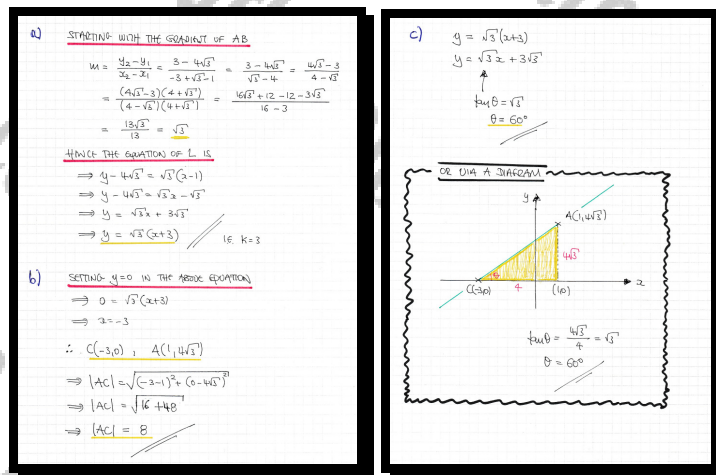 a) STARTING WITH THE GRADIENT OF AB
m = (y₂-y₁)/(x₂-x₁) = (3-4√3)/(-3+√3-1) = (3-4√3)/(√3-4) = (4√3-3)/(4-√3)
= (4√3-3)(4+√3)/(4-√3)(4+√3) = (16√3+12-12-3√3)/(16-3)
= 13√3/13 = √3
HENCE THE EQUATION OF L IS
⇒ y-4√3 = √3(x-1)
⇒ y-4√3 = √3x-√3
⇒ y = √3x+3√3
⇒ y = √3(x+3)
IE. K=3
b) SETTING y=0 IN THE ABOVE EQUATION
⇒ 0 = √3(x+3)
⇒ x=-3
∴ C(-3,0), A(1,4√3)
⇒ |AC| = √((-3-1)²+(0-4√3)²)
⇒ |AC| = √(16+48)
⇒ |AC| = 8
c) y = √3(x+3)
y = √3x+3√3
tanθ=√3
θ=60°
OR VIA A DIAGRAM
y
A(1,4√3)
4√3
θ
4
x
C(-3,0)
(1,0)
tanθ = 4√3/4 = √3
θ = 60°